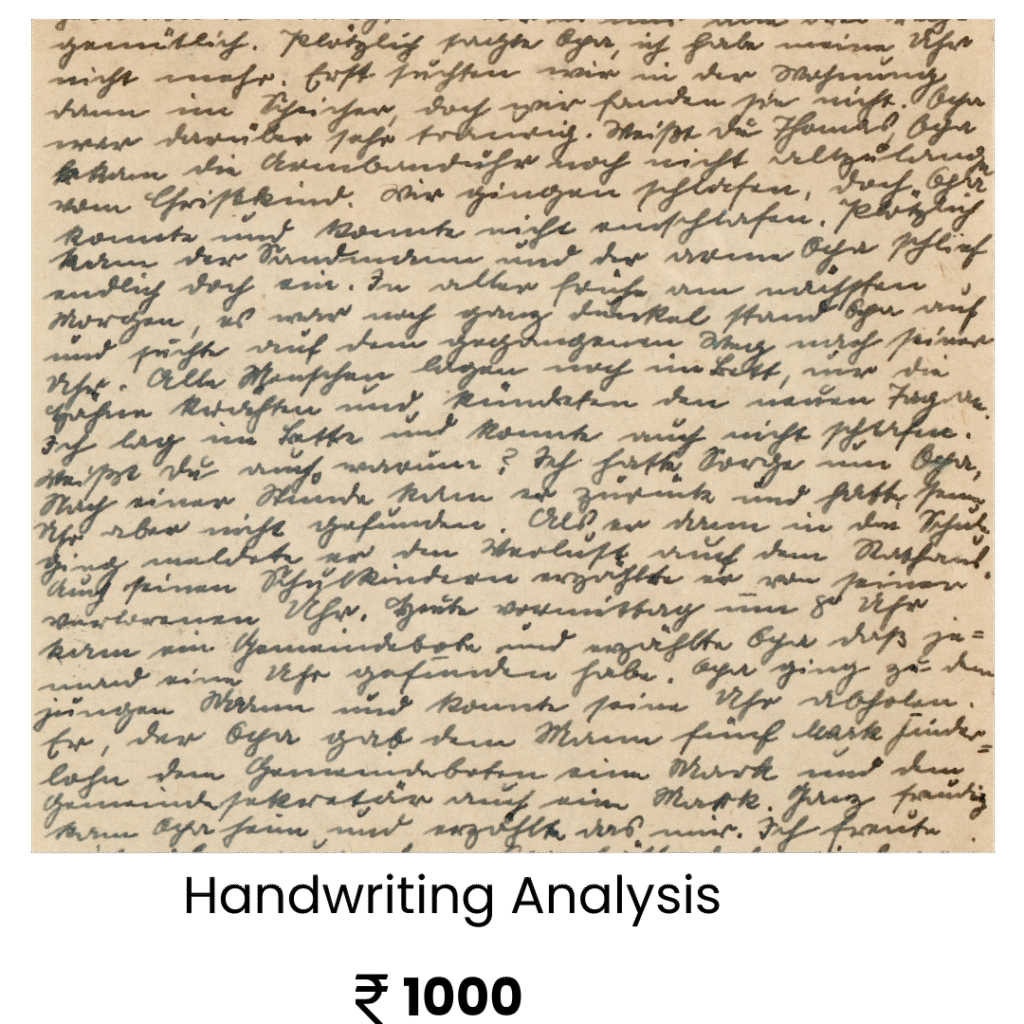 gemütlich. Plötzlich sagte Opa, ich habe meine Uhr
nicht mehr. Erst suchten wir in der Wohnung
dann im Speicher, doch wir fanden sie nicht. Opa
war darüber sehr traurig. Weißt du Thomas, Opa
bekam die Armbanduhr noch nicht allzulange
vom Christkind. Wir gingen schlafen, doch Opa
konnte und konnte nicht einschlafen. Plötzlich
kam der Sandmann und der arme Opa schlief
endlich doch ein. In aller frühe am nächsten
Morgen, es war noch ganz dunkel stand Opa auf
und suchte auf dem gegangenen Weg nach seiner
Uhr. Alle Menschen lagen noch im Bett, nur die
Hähne krächten und kündeten den neuen Tag an.
Ich lag im Bette und konnte auch nicht schlafen.
Weißt du auch, warum? Ich hatte Sorge um Opa.
Nach einer Stunde kam er zurück und hatte seine
Uhr aber nicht gefunden. Als er dann in die Schule
ging meldete er den Verlust auch dem Rathaus.
Auch seinen Schulkindern erzählte er von seiner
verlorenen Uhr. Heute vormittag um 8 Uhr
kam ein Gemeindebote und erzählte Opa daß je=
mand eine Uhr gefunden habe. Opa ging zu dem
jungen Mann und konnte seine Uhr abholen.
Er, der Opa gab dem Mann fünf Mark Finder=
lohn dem Gemeindeboten eine Mark und dem
Gemeindesekretär auch eine Mark. Ganz freudig
kam Opa heim und erzählte das mir. Ich freute
Handwriting Analysis
₹ 1000